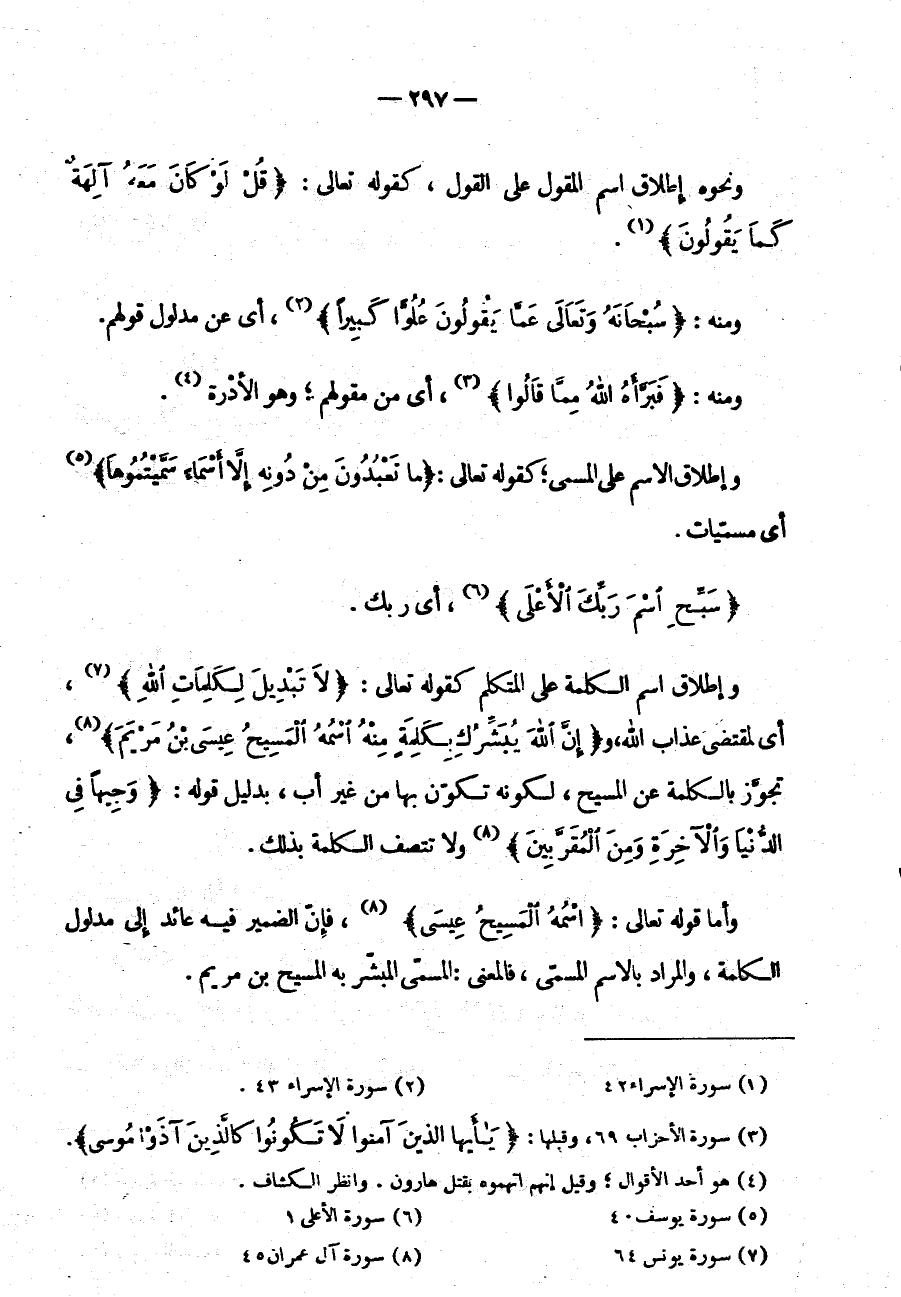 — ٢٩٧ —
ونحوه إطلاق اسم المقول على القول ، كقوله تعالى : ﴿ قُلْ لَوْ كَانَ مَعَهُ آلِهَةٌ
كَمَا يَقُولُونَ ﴾ (١) .
ومنه : ﴿ سُبْحَانَهُ وَتَعَالَى عَمَّا يَقُولُونَ عُلُوًّا كَبِيراً ﴾ (٢) ، أى عن مدلول قولهم.
ومنه : ﴿ فَبَرَّأَهُ اللهُ مِمَّا قَالُوا ﴾ (٣) ، أى من مقولهم ؛ وهو الأدْرة (٤) .
وإطلاق الاسم على المسمى؛ كقوله تعالى : ﴿ما تَعْبُدُونَ مِنْ دُونِهِ إِلَّا أَسْمَاءَ سَمَّيْتُمُوهَا﴾ (٥)
أى مسمّيات .
﴿ سَبِّحِ ٱسْمَ رَبِّكَ ٱلْأَعْلَى ﴾ (٦) ، أى ربك .
وإطلاق اسم الكلمة على المتكلم كقوله تعالى : ﴿ لاَ تَبْدِيلَ لِكَلِمَاتِ ٱللهِ ﴾ (٧) ،
أى لمقتضى عذاب الله، و﴿ إِنَّ ٱللهَ يُبَشِّرُكِ بِكَلِمَةٍ مِنْهُ ٱسْمُهُ ٱلْمَسِيحُ عِيسَى بْنُ مَرْيَمَ﴾ (٨) ،
تجوّز بالكلمة عن المسيح ، لكونه تكوّن بها من غير أب ، بدليل قوله : ﴿ وَجِيهاً فِى
الدُّنْيَا وَٱلْآخِرَةِ وَمِنَ ٱلْمُقَرَّبِينَ ﴾ (٨) ولا تتصف الكلمة بذلك .
وأما قوله تعالى : ﴿ اسْمُهُ ٱلْمَسِيحُ عِيسَى﴾ (٨) ، فإنّ الضمير فيه عائد إلى مدلول
الكلمة ، والمراد بالاسم المسمّى ، فالمعنى : المسمّى المبشّر به المسيح بن مريم .
(١) سورة الإسراء ٤٢ (٢) سورة الإسراء ٤٣ .
(٣) سورة الأحزاب ٦٩ ، وقبلها : ﴿ يَـٰأَيها الذينَ آمنوا لَا تَكُونُوا كالَّذِينَ آذَوْا مُوسى﴾.
(٤) هو أحد الأقوال ؛ وقيل إنهم اتهموه بقتل هارون . وانظر الكشاف .
(٥) سورة يوسف ٤٠ (٦) سورة الأعلى ١
(٧) سورة يونس ٦٤ (٨) سورة آل عمران ٤٥